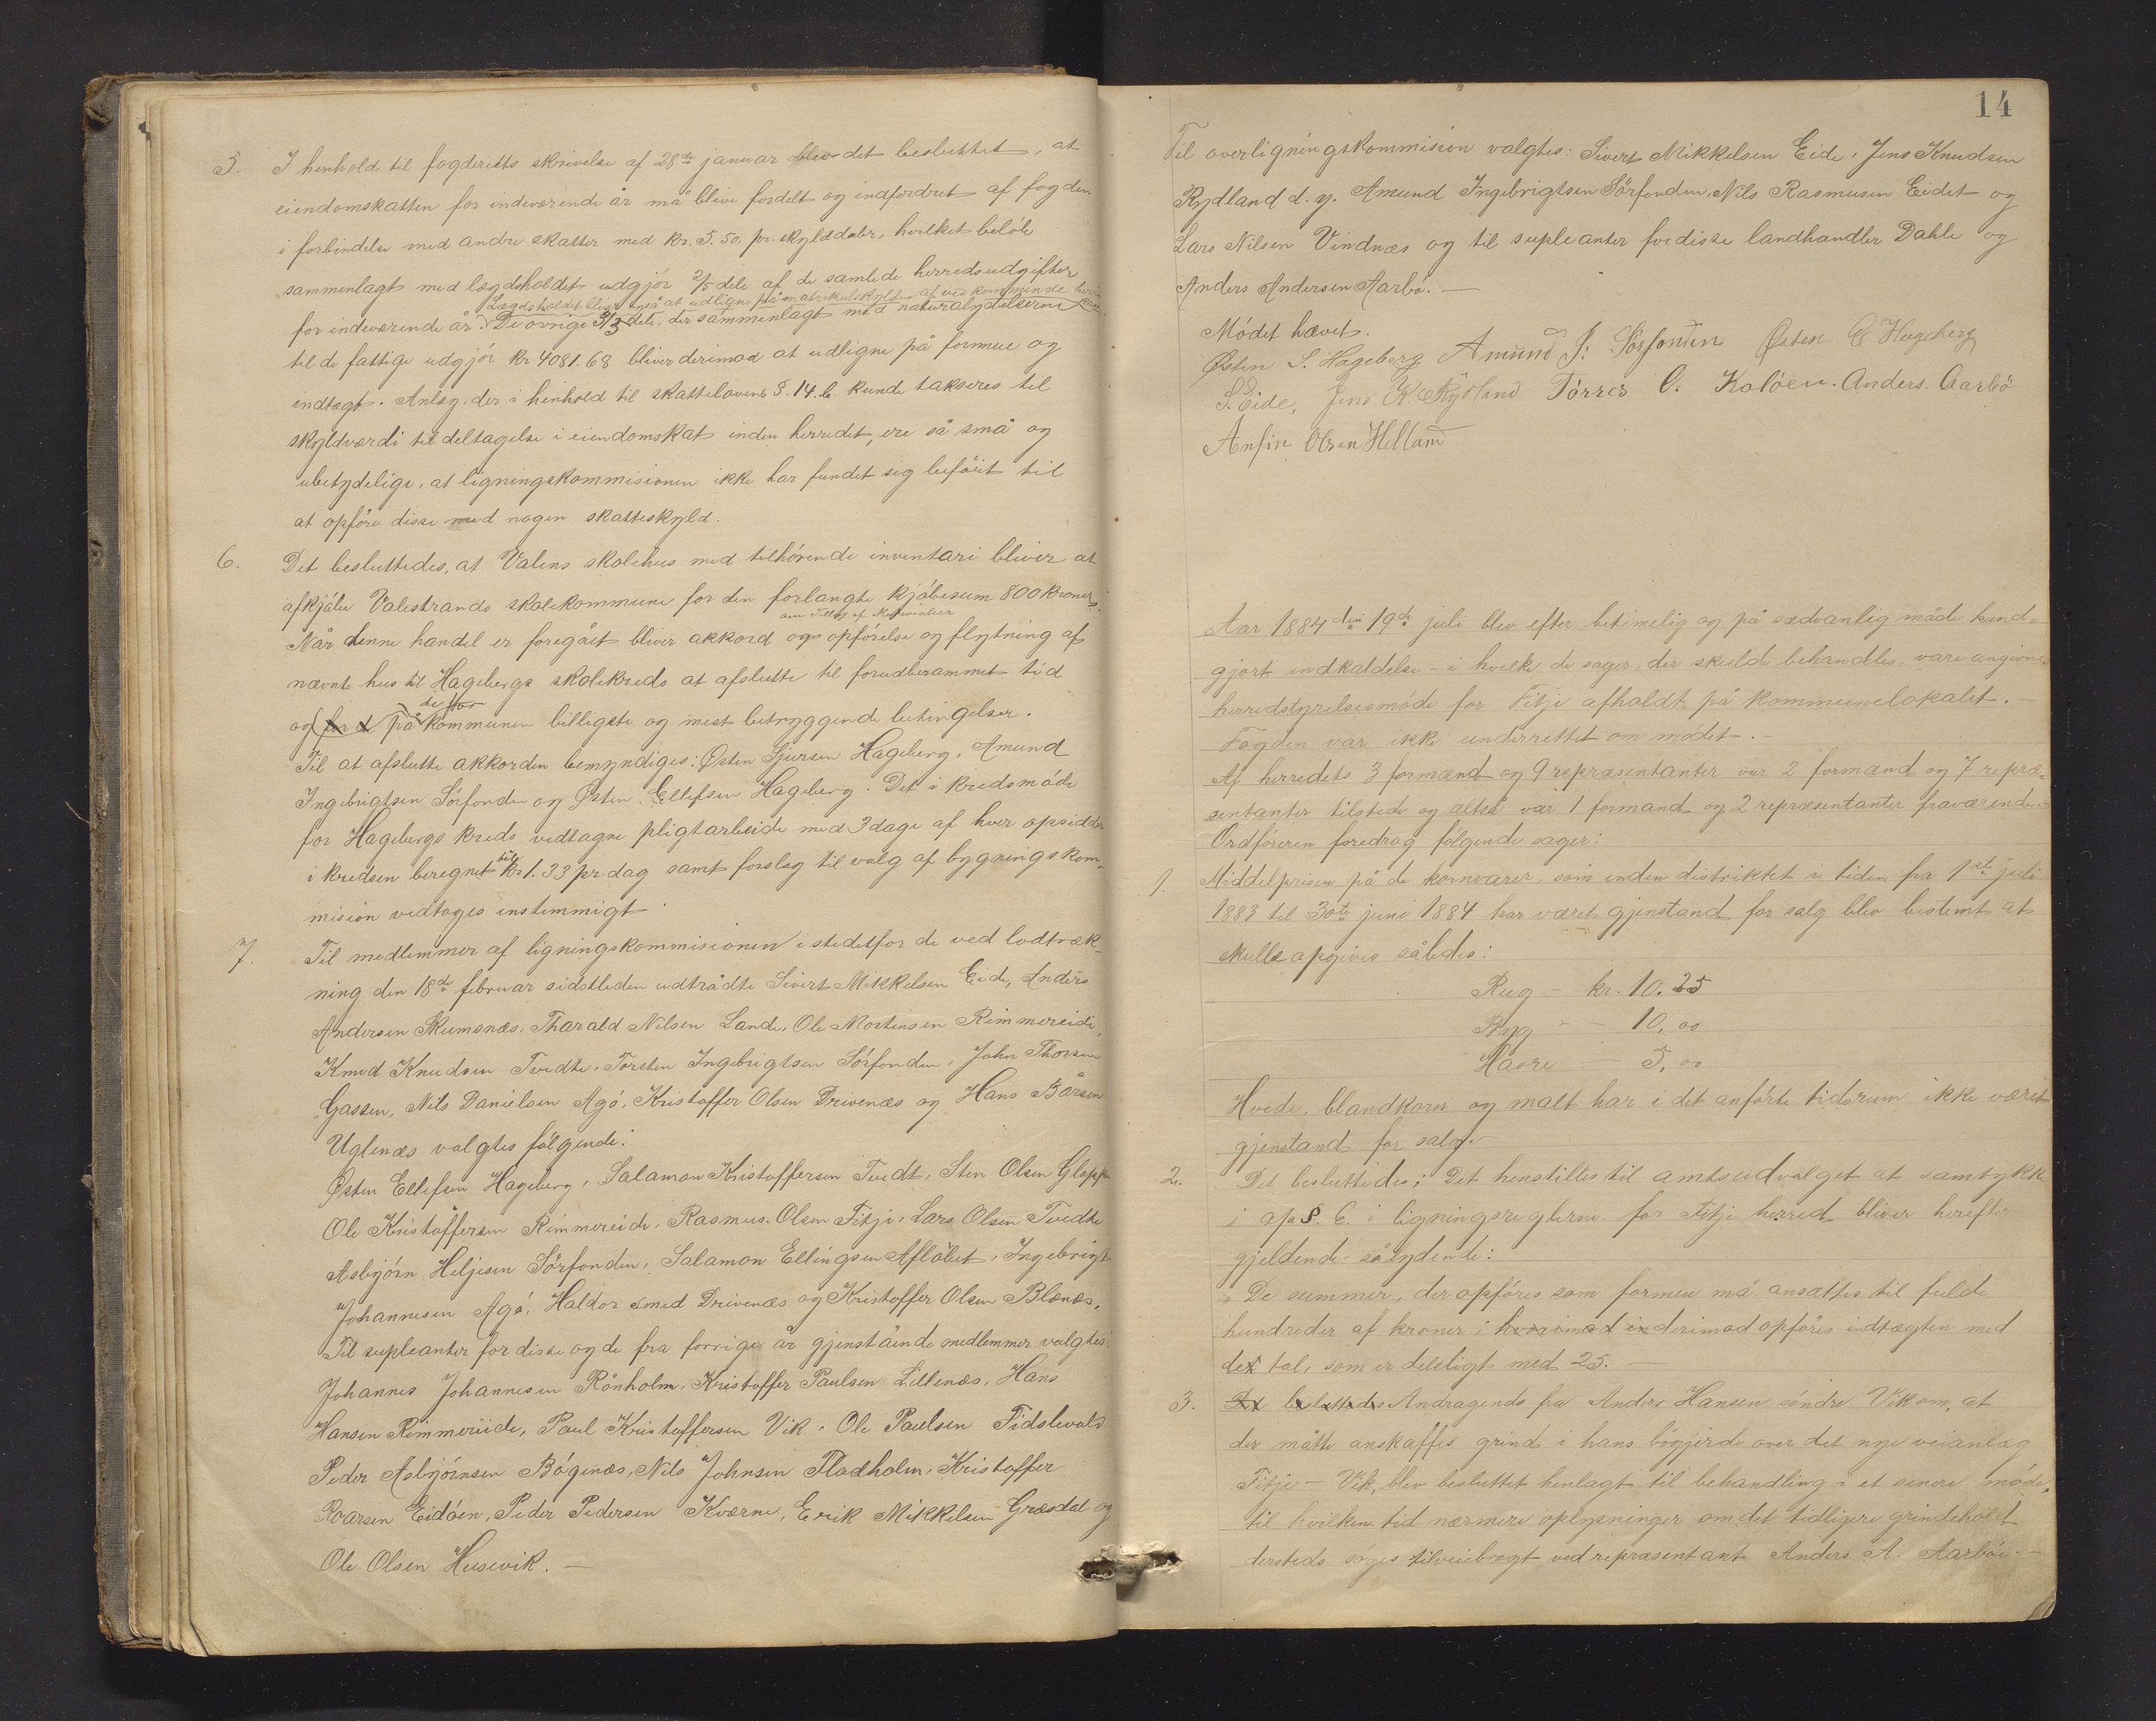 5. I henhold til fogderiets skrivelse af 28de januar blev det besluttet, at
eiendomskatten for indeværende år må blive fordelt og indfordret af fogden
i forbindelse med andre skatter med kr. 5.50. pr. skylddaler, hvilket beløb
sammenlagt med lægdsholdet udgjör 2/5 dele af de samlede herredsudgifter
Lægdsholdet bliver også at udligne på matrikulskylden af vedkommende
for indeværende år. De övrige 3/5 dele, der sammenlagt med naturalydelserne
til de fattige udgjör kr 4081.68 bliver derimod at udligne på formue og
indtægt. Anlæg, der i henhold til skattelovens §. 14. b. kunde takseres til
skyldværdi til deltagelse i eiendomskat inden herredet, ere så små og
ubetydelige, at ligningskommisionen ikke har fundet sig beföiet til
at opföre disse med nogen skatteskyld.
6. Det besluttedes, at Valens skolehus med tilhörende inventari bliver at
afkjöbe Valestrands skolekommune for den forlangte kjöbesum 800 kroner.
om Tillæg af Materialier
Når denne handel er foregået bliver akkord ogs opförelse og flytning af
nævnte hus til Hagebergs skolekreds at afslutte til forudberammet tid
de for
og for d på kommunen billigste og mest betryggende betingelser.
Til at afslutte akkorden bemyndiges: Østen Sjursen Hageberg, Amund
Ingebrigtsen Sörfonden og Østen Ellefsen Hageberg. Det i kredsmöde
for Hagebergs kreds vedtagne pligtarbeide med 3 dage af hver opsidder
i kredsen beregnet til kr 1.33 pr. dag samt forslag til valg af bygningskom-
mision vedtoges enstemmigt.
7. Til medlemmer af ligningskommisionen istedetfor de ved lodtræk-
ning den 18de februar sidstleden udtrådte Sivert Mikkelsen Eide, Anders
Andersen Skumsnæs, Tharald Nilsen Lande, Ole Mortensen Rimmereide,
Knud Knudsen Tvedte, Torsten Ingebrigtsen Sörfonden, John Thorsen
Gassen, Nils Danielsen Agö, Kristoffer Olsen Drivenæs og Hans Bårsen
Uglenæs valgtes fölgende:
Østen Ellefsen Hageberg, Salamon Kristoffersen Tvedt, Sten Olsen Gloppe
Ole Kristoffersen Rimmereide, Rasmus Olsen Fitje, Lars Olsen Tvedte
Asbjörn Heljesen Sörfonden, Salamon Ellingsen Aflöbet, Ingebrigt
Johannesen Agö, Haldor smed Drivenæs og Kristoffer Olsen Blænæs.
Til supleanter for disse og de fra forrige år gjenstående medlemmer valgtes:
Johannes Johannesen Rönholm, Kristoffer Paulsen Lillenæs, Hans
Hansen Rimmereide, Paul Kristoffersen Vik, Ole Paulsen Tidslevold
Peder Asbjörnsen Bögenæs, Nils Johnsen Fladholm, Kristoffer
Roarsen Eidöen, Peder Pedersen Kværne, Erik Mikkelsen Græsdal og
Ole Olsen Husevik. —
14
Til overligningskommision valgtes: Sivert Mikkelsen Eide, Jens Knudsen
Rydland d. y. Amund Ingebrigtsen Sörfonden, Nils Rasmusen Eidet og
Lars Nilsen Vindnæs og til supleanter for disse landhandler Dahle og
Anders Andersen Aarbö. —
Mödet hævet.
Østen S. Hageberg Amund I. Sörfonden Østen E Hageberg
S. Eide, Jens K Rydland Törres O. Kalöen. Anders. Aarbö
Anfin Olsen Helland
Aar 1884 den 19de juli blev efter betimelig og på sædvanlig måde kund-
gjort indkaldelse - i hvilke de sager, der skulde behandles, vare angivne
herredstyrelsesmöde for Fitje afholdt på kommunelokalet. —
Fogden var ikke underrettet om mödet. —
Af herredets 3 formænd og 9 repræsentanter var 2 formænd og 7 repræ-
sentanter tilstede og altså var 1 formand og 2 repræsentanter fraværende.
Ordföreren foredrog fölgende sager:
1. Middelprisen på de kornvarer, som inden distriktet i tiden fra 1ste juli
1883 til 30te juni 1884 har været gjenstand for salg blev bestemt at
skulle opgives således:
Rug — kr. 10.25
Byg — — 10,00
Havre — 5,00
Hvede, blandkorn og malt har i det anförte tidsrum ikke været
gjenstand for salg. —
2. Det besluttedes: Det henstilles til amtsudvalget at samtykke
i at § 6. i ligningsreglerne for Fitje herred bliver herefter
gjeldende sålydende:
„De summer, der opföres som formue må ansættes til fulde
hundreder af kroner; hvorimod in derimod opföres indtægten med
det tal, som er deleligt med 25. —
3. Det besluttedes Andragende fra Anders Hansen söndre Vik om, at
der måtte anskaffes grind i hans bögjerde over det nye veianlæg
Fitje — Vik, blev besluttet henlagt til behandling i et senere möde,
til hvilken tid nærmere oplysninger om det tidligere grindehold
dersteds söges tilveiebragt ved repræsentant Anders A. Aarböe. —